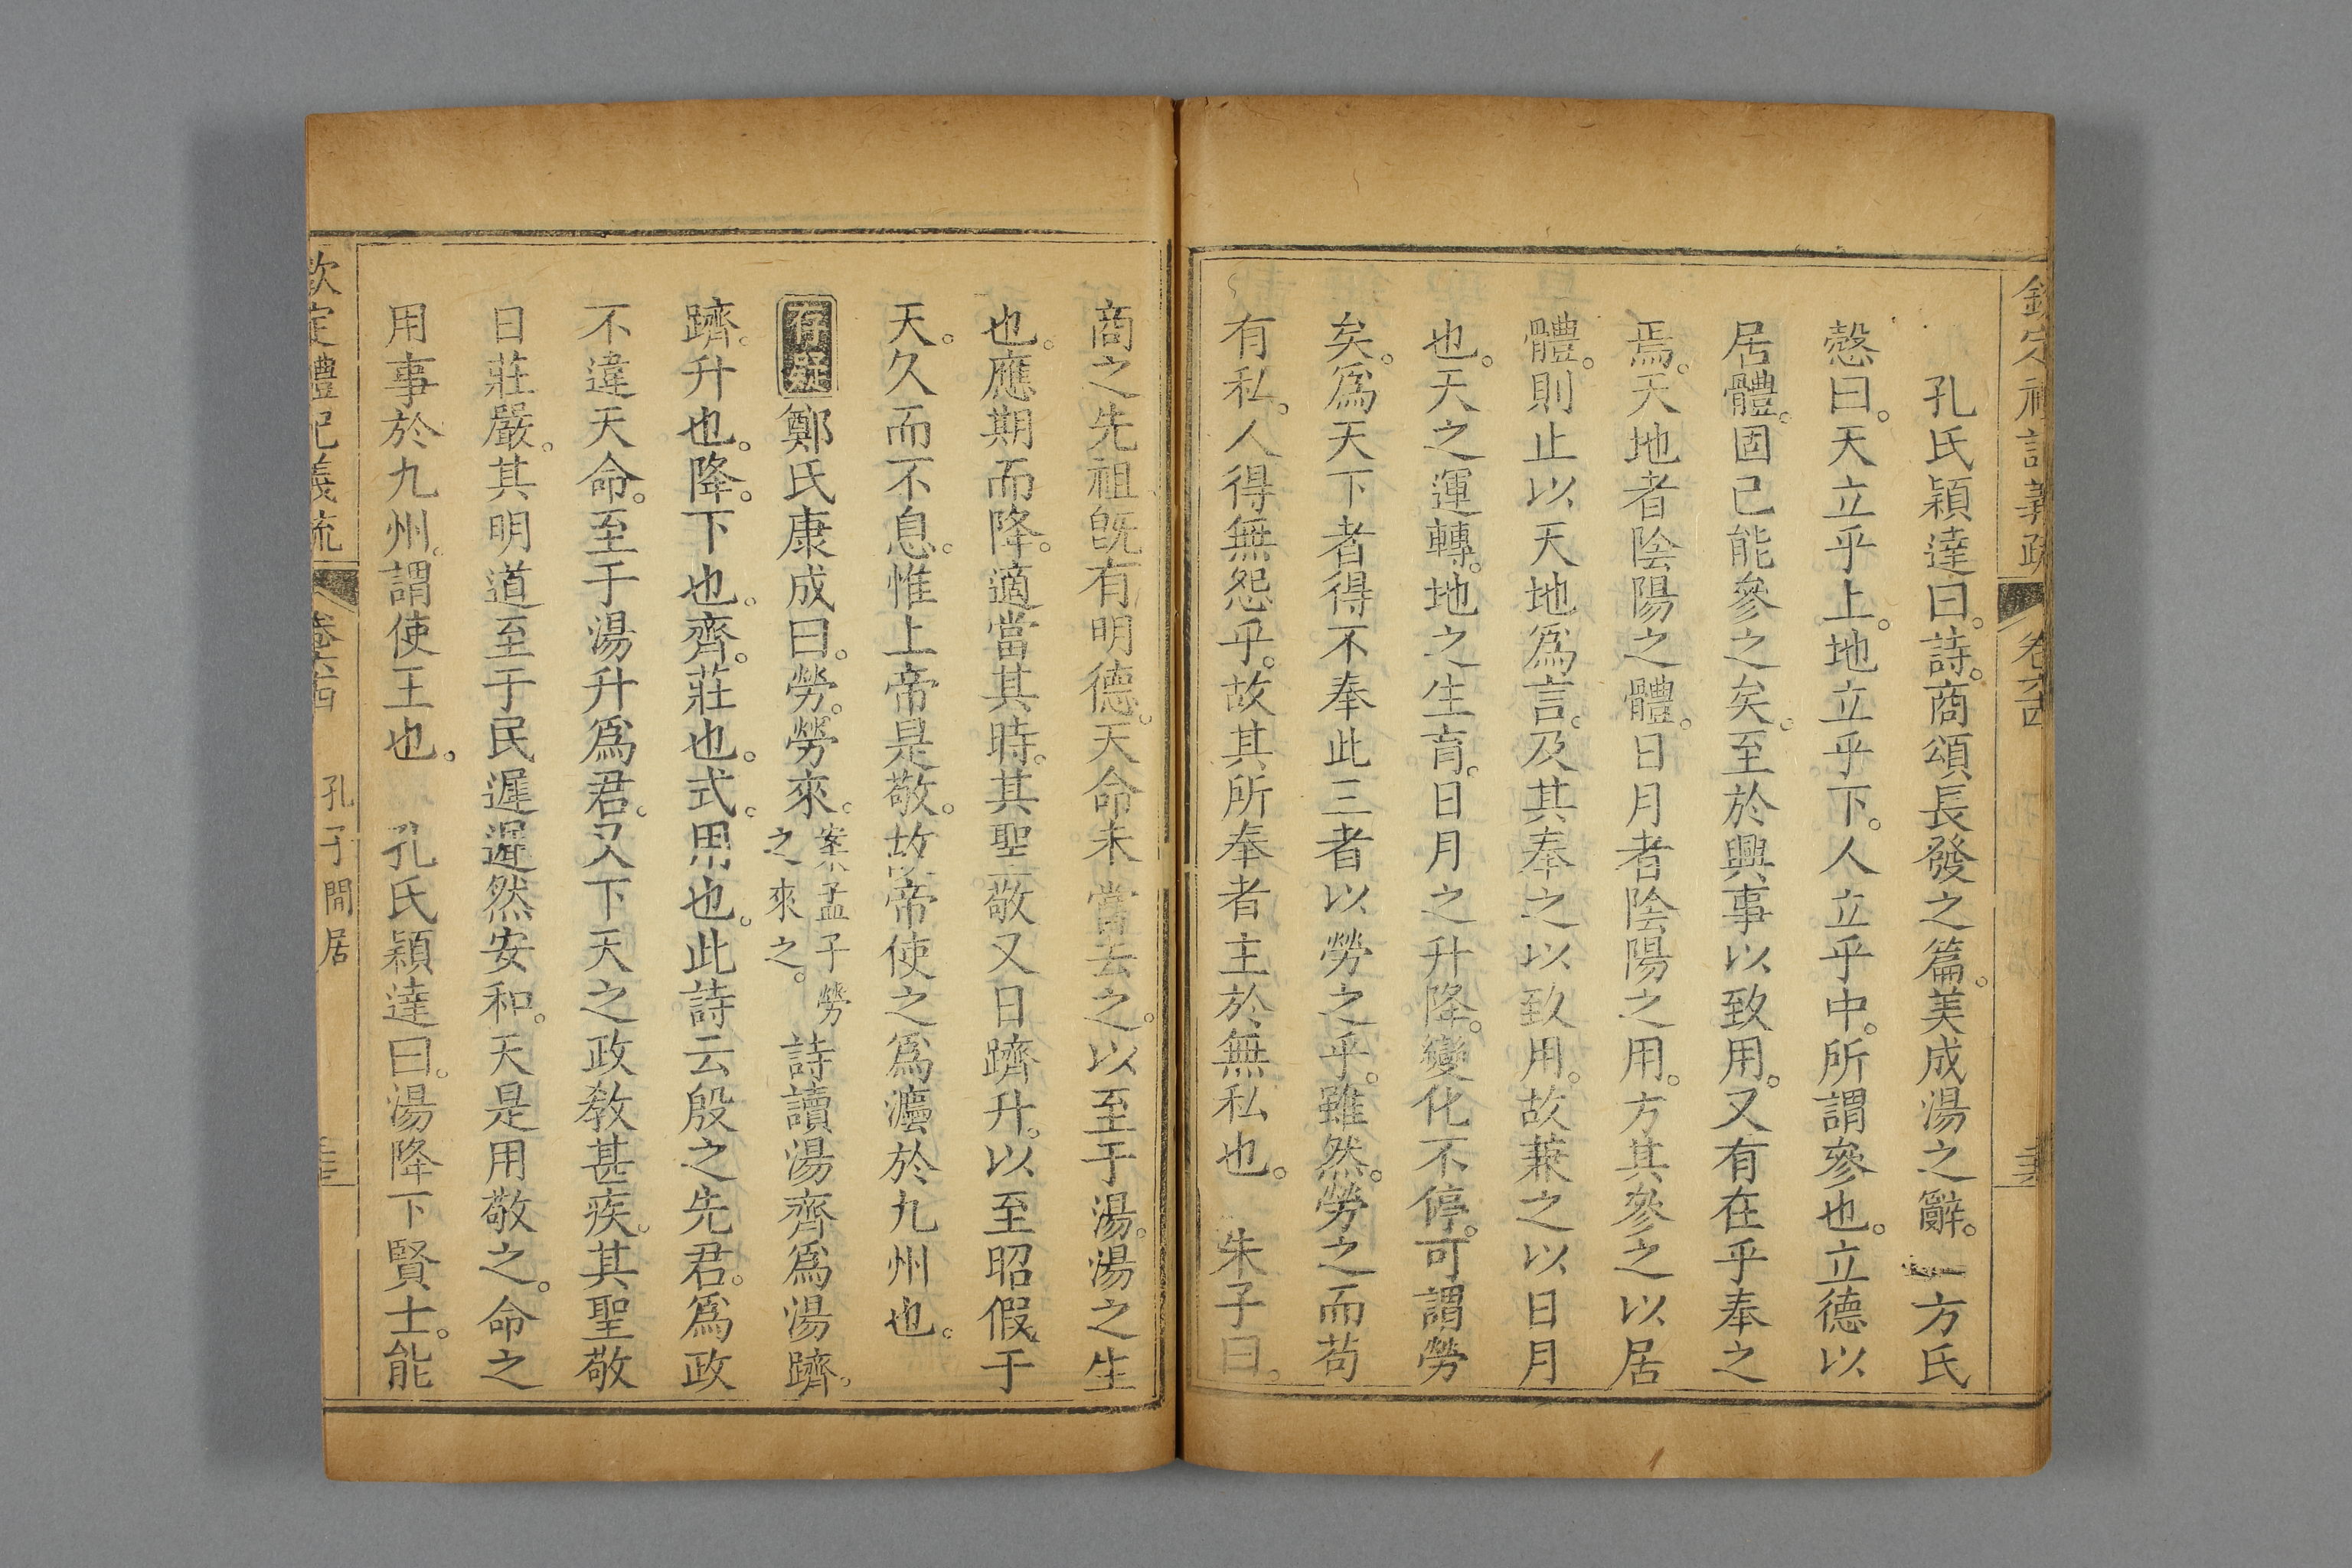 欽定禮記義疏 卷六十四
孔氏穎達曰。詩。商頌長發之篇。美成湯之辭。 方氏
慤曰。天立乎上。地立乎下。人立乎中。所謂參也。立德以
居體。固已能參之矣。至於興事以致用。又有在乎奉之
焉。天地者陰陽之體。日月者陰陽之用。方其參之以居
體。則止以天地爲言。及其奉之以致用。故兼之以日月
也。天之運轉。地之生育。日月之升降。變化不停。可謂勞
矣。爲天下者得不奉此三者以勞之乎。雖然。勞之而苟
有私。人得無怨乎。故其所奉者主於無私也。 朱子曰。
商之先祖旣有明德。天命未嘗去之。以至于湯。湯之生
也。應期而降。適當其時。其聖敬又日躋升。以至昭假于
天。久而不息。惟上帝是敬。故帝使之爲灋於九州也。
存疑 鄭氏康成曰。勞。勞來。案孟子勞之來之。詩讀湯齊爲湯躋。
躋。升也。降。下也。齊。莊也。式。用也。此詩云殷之先君。爲政
不違天命。至于湯升爲君。又下天之政敎甚疾。其聖敬
日莊嚴。其明道至于民遲遲然安和。天是用敬之。命之
用事於九州。謂使王也。 孔氏穎達曰。湯降下賢士。能
欽定禮記義疏 卷六十四 孔子閒居